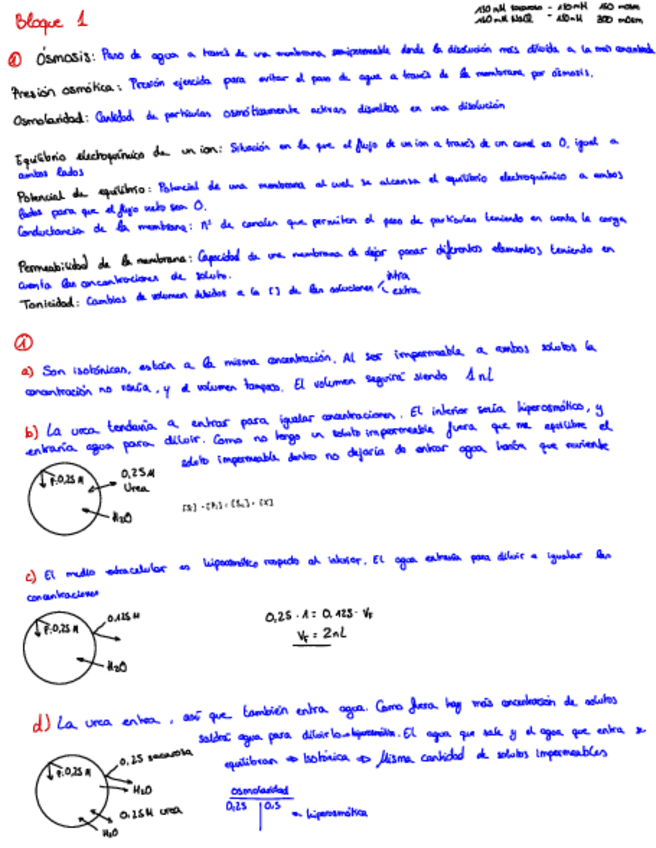 150 mM sacarosa - 150 mM 150 mOsm
150 mM NaCl - 150 mM 300 mOsm
Bloque 1
Ósmosis: Paso de agua a través de una membrana semipermeable desde la disolución más diluida a la más concentrada
Presión osmótica: Presión ejercida para evitar el paso de agua a través de la membrana por ósmosis.
Osmolaridad: Cantidad de partículas osmóticamente activas disueltas en una disolución
Equilibrio electroquímico de un ion: Situación en la que el flujo de un ion a través de un canal es 0, igual a
ambos lados
Potencial de equilibrio: Potencial de una membrana al cual se alcanza el equilibrio electroquímico a ambos
lados para que el flujo neto sea 0.
Conductancia de la membrana: nº de canales que permiten el paso de partículas teniendo en cuenta la carga
Permeabilidad de la membrana: Capacidad de una membrana de dejar pasar diferentes elementos teniendo en
cuenta las concentraciones de soluto.
Tonicidad: Cambios de volumen debidos a la [ ] de las soluciones intra
extra
1
a) Son isotónicas, están a la misma concentración. Al ser impermeable a ambos solutos la
concentración no varía, y el volumen tampoco. El volumen seguirá siendo 1 nL
b) La urea tendería a entrar para igualar concentraciones. El interior sería hiperosmótico, y
entraría agua para diluir. Como no tengo un soluto impermeable fuera que me equilibre el
soluto impermeable dentro no dejaría de entrar agua hasta que reviente
P: 0,25 M
0,25 M
Urea
H2O
c) El medio extracelular es hiposmótico respecto al interior. El agua entraría para diluir e igualar las
concentraciones
P: 0,25 M
0,125 M
H2O
0,25 · 1 = 0,125 · VF
VF = 2 nL
d) La urea entra, así que también entra agua. Como fuera hay más concentración de solutos
saldrá agua para diluirlo. El agua que sale y el agua que entra se
equilibran ⇒ Isotónica ⇒ Misma cantidad de solutos impermeables
P: 0,25 M
0,25 sacarosa
H2O
0,25 M urea
H2O
osmolaridad
0,25 | 0,5
hiperosmótica